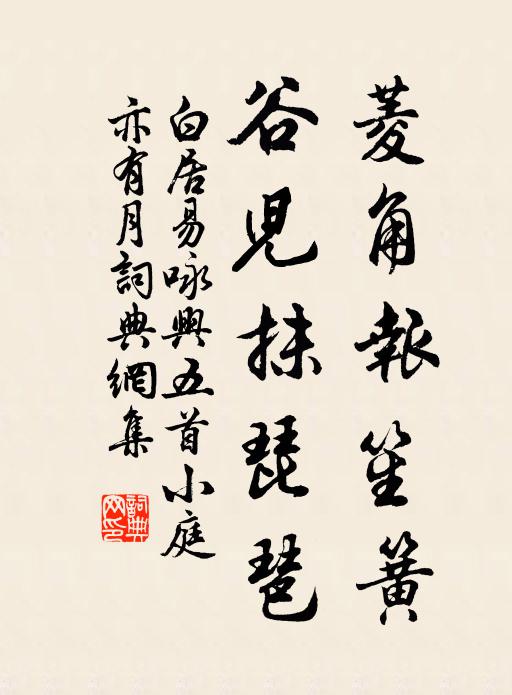 菱角報笙簧
谷兒抹琵琶
白居易咏興五首小庭
亦有月詞典網集
詞典網印